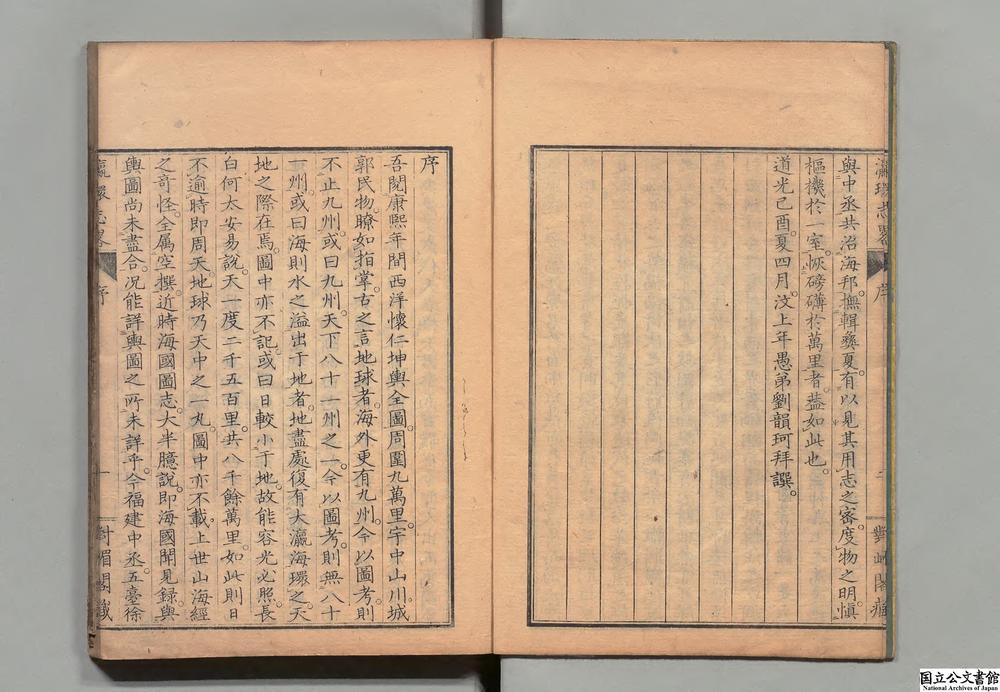 瀛環志畧
序
與中丞共治海邦撫輯彝夏有以見其用志之審度物之明愼
樞機於一室恢磅礴於萬里者葢如此也
道光己酉夏四月汶上年愚弟劉韻珂拜譔
序
吾閱康熙年間西洋懷仁坤輿全圖周圍九萬里宇中山川城
郭民物瞭如指掌古之言地球者海外更有九州今以圖考則
不止九州或曰九州天下八十一州之一今以圖考則無八十
一州或曰海則水之溢出于地者地盡處復有大瀛海環之天
地之際在焉圖中亦不記或曰日較小于地故能容光必照長
白何太安易說天一度二千五百里共八千餘萬里如此則日
不逾時即周天地球乃天中之一丸圖中亦不載上世山海經
之奇怪全属空撰近時海國圖志大半臆說即海國聞見録與
輿圖尚未盡合况能詳輿圖之所未詳乎今福建中丞五臺徐
瀛環志畧
序
一
對嵋閣藏
国立公文書館
National Archives of Japan